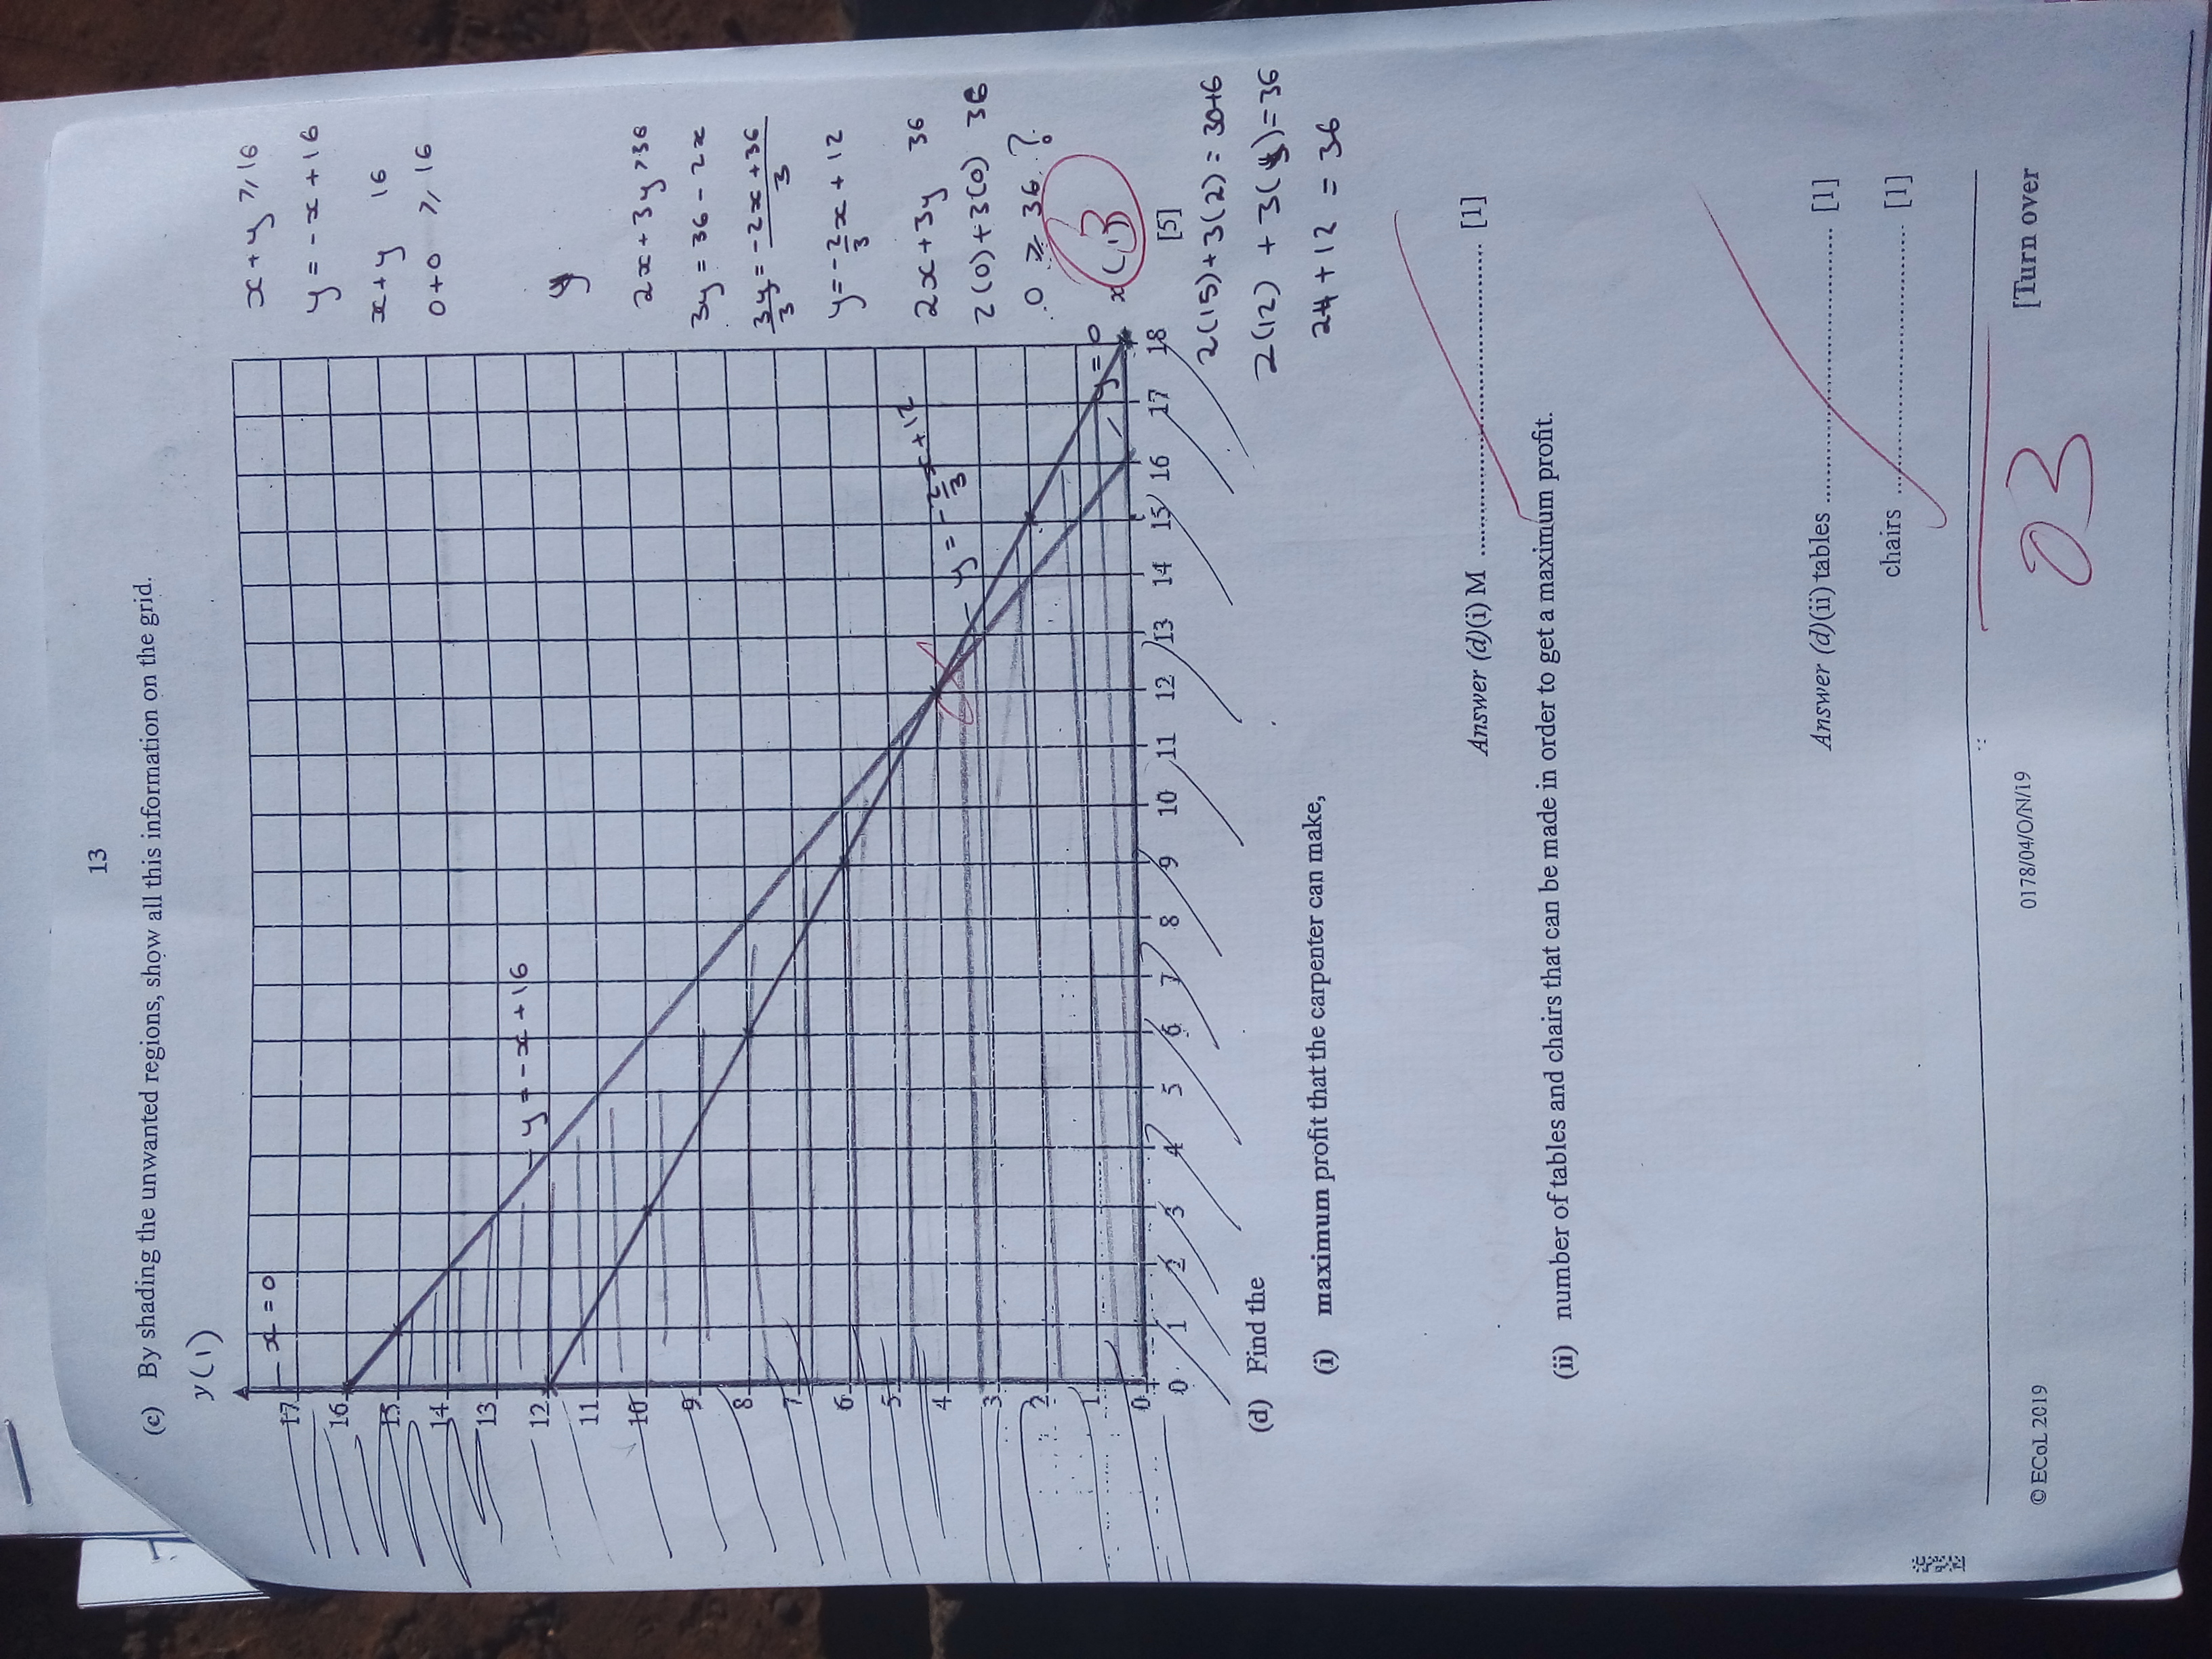 13
(c) By shading the unwanted regions, show all this information on the grid.
y(1)
x = 0
17
16
15
14
13
12
11
10
9
8
7
6
5
4
3
2
1
0
y = -x + 16
y = -2/3x + 12
y = 0
x(1)
3
0 1 2 3 4 5 6 7 8 9 10 11 12 13 14 15 16 17 18
[5]
x + y ⩾ 16
y = -x + 16
x + y 16
0 + 0 ⩾ 16
y
2x + 3y > 36
3y = 36 - 2x
3y/3 = -2x + 36/3
y = -2/3x + 12
2x + 3y 36
2(0) + 3(0) 36
0 ⩾ 36 ?
2(15) + 3(2) = 30+6
2(12) + 3(4) = 36
24 + 12 = 36
(d) Find the
(i) maximum profit that the carpenter can make,
Answer (d)(i) M .................................................. [1]
(ii) number of tables and chairs that can be made in order to get a maximum profit.
Answer (d)(ii) tables .......................................... [1]
chairs .......................................... [1]
© ECoL 2019
0178/04/O/N/19
[Turn over
03